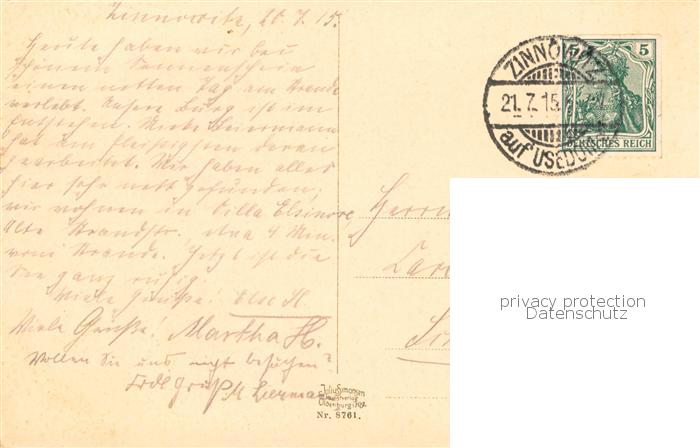 Zinnowitz, 20.7.15.
Heute haben wir bei
schönem Sonnenschein
einen netten Tag am Strande
verlebt. Unsere Burg ist im
Entstehen. Mieke Beiermann
hat am fleissigsten daran
gearbeitet. Wir haben alles
hier sehr nett gefunden;
wir wohnen in Villa Elsinore,
Alte Strandstr., etwa 4 Min.
vom Strande. Jetzt ist die
See ganz ruhig.
Viele Grüße! Else H.
Viele Grüße! Martha H.
Wollen Sie uns nicht besuchen?
Frdl Gruß M
ZINNOWITZ
21.7.15
auf USEDOM
5
DEUTSCHES REICH
Herrn
privacy protection
Datenschutz
Julius Simonsen
Kunstverlag
Oldenburg i. Hol.
Nr. 8761.